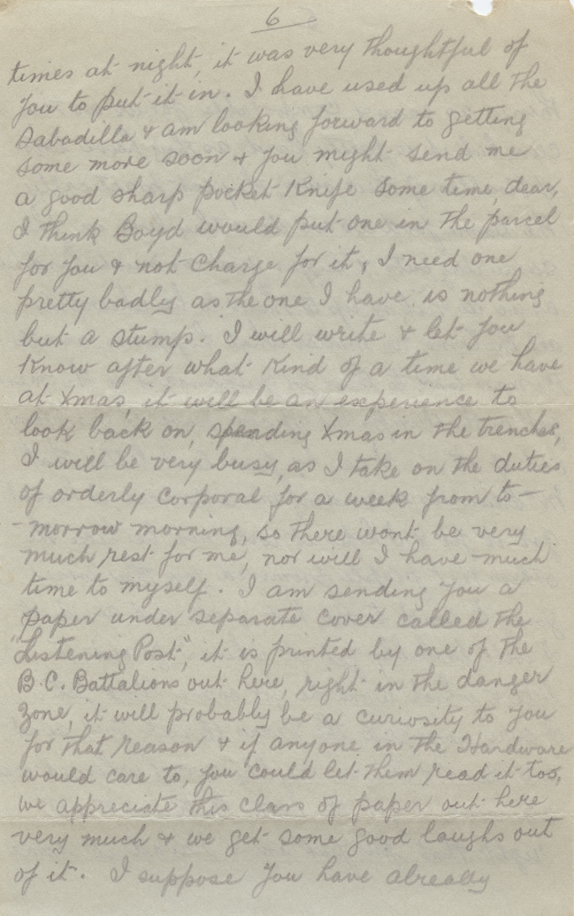 6
times at night, it was very thoughtful of
you to put it in. I have used up all the
Sabadilla & am looking forward to getting
some more soon & you might send me
a good sharp pocket Knife some time, dear,
I think Boyd would put one in the parcel
for you & not charge for it, I need one
pretty badly as the one I have is nothing
but a stump. I will write & let you
Know after what Kind of a time we have
at Xmas, it will be an experience to
look back on, spending Xmas in the trenches,
I will be very busy, as I take on the duties
of orderly corporal for a week from to-
-morrow morning, so there wont be very
much rest for me, nor will I have much
time to myself. I am sending you a
paper under separate cover called the
"Listening Post", it is printed by one of the
B.C. Battalions out here, right in the danger
zone, it will probably be a curiosity to you
for that reason & if anyone in the Hardware
would care to, you could let them read it too,
we appreciate this class of paper out here
very much & we get some good laughs out
of it. I suppose you have already